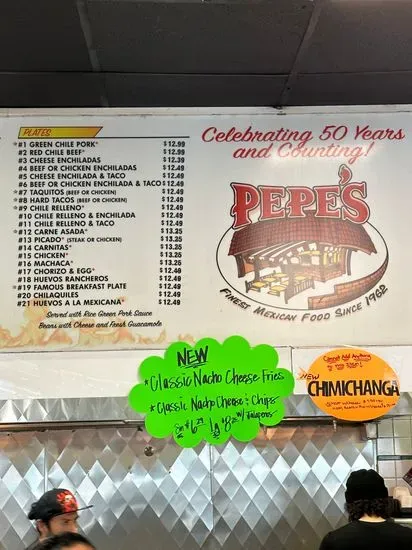 PLATES
*#1 GREEN CHILE PORK* $12.99
#2 RED CHILE BEEF* $12.99
#3 CHEESE ENCHILADAS $12.39
#4 BEEF OR CHICKEN ENCHILADAS $12.49
#5 CHEESE ENCHILADA & TACO $12.49
#6 BEEF OR CHICKEN ENCHILADA & TACO $12.49
*#7 TAQUITOS (BEEF OR CHICKEN) $12.49
*#8 HARD TACOS (BEEF OR CHICKEN) $12.49
*#9 CHILE RELLENO* $12.49
#10 CHILE RELLENO & ENCHILADA $12.49
#11 CHILE RELLENO & TACO $12.49
*#12 CARNE ASADA* $13.25
#13 PICADO* (STEAK OR CHICKEN) $13.25
#14 CARNITAS* $13.25
#15 CHICKEN* $13.25
#16 MACHACA* $13.25
#17 CHORIZO & EGG* $12.49
#18 HUEVOS RANCHEROS $12.49
*#19 FAMOUS BREAKFAST PLATE $12.49
#20 CHILAQUILES $12.49
#21 HUEVOS A LA MEXICANA* $12.49
Served with Rice Green Pork Sauce
Beans with Cheese and Fresh Guacamole
Celebrating 50 Years
and Counting!
PEPE'S
FINEST MEXICAN FOOD SINCE 1962
NEW
*Classic Nacho Cheese Fries
*Classic Nacho Cheese & Chips
Sm $6.29 Lg $8.25 w/ Jalapeños
Cannot Add Anything
NEW
CHIMICHANGA